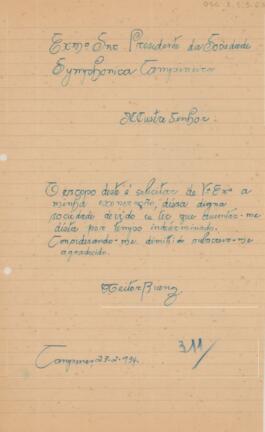 Exmº Snr Presidente da Sociedade
Symphonica Campineira
Illustre Senhor.
O escopo deste é solicitar de V. Exª a
minha exoneração, dessa digna
sociedade devido eu ter que ausentar-me
desta por tempo indeterminado.
Considerando-me demitido subscrevo-me
agradecido.
Heitor Bueno
Campinas, 23-2-934.
311/